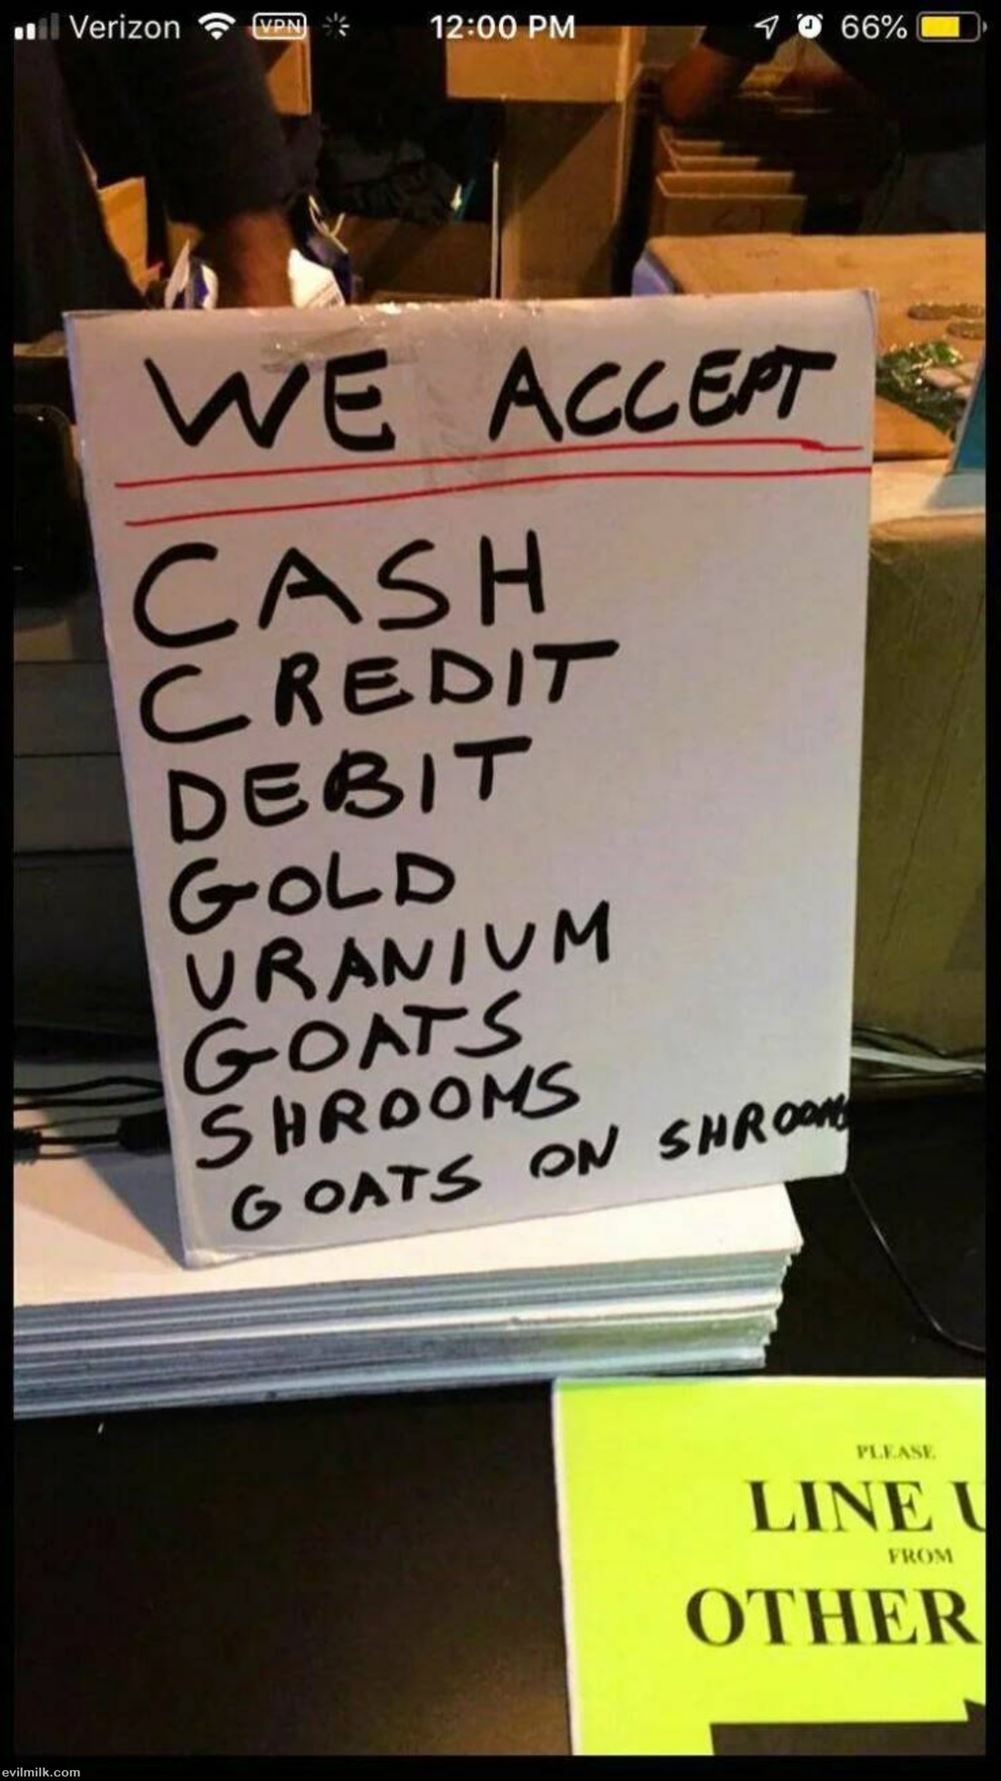 Verizon VPN 12:00 PM 66%
WE ACCEPT
CASH
CREDIT
DEBIT
GOLD
URANIUM
GOATS
SHROOMS
GOATS ON SHROOMS
PLEASE
LINE U
FROM
OTHER
evilmilk.com